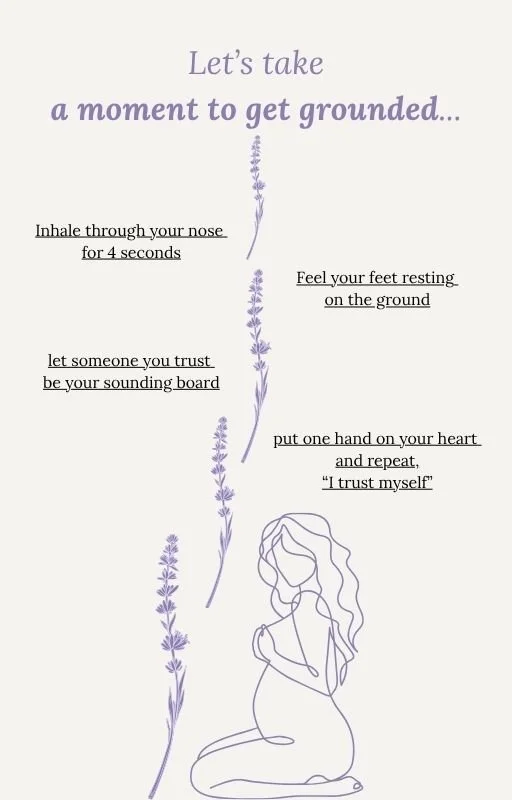 Let’s take
a moment to get grounded...
Inhale through your nose
for 4 seconds
Feel your feet resting
on the ground
let someone you trust
be your sounding board
put one hand on your heart
and repeat,
“I trust myself”